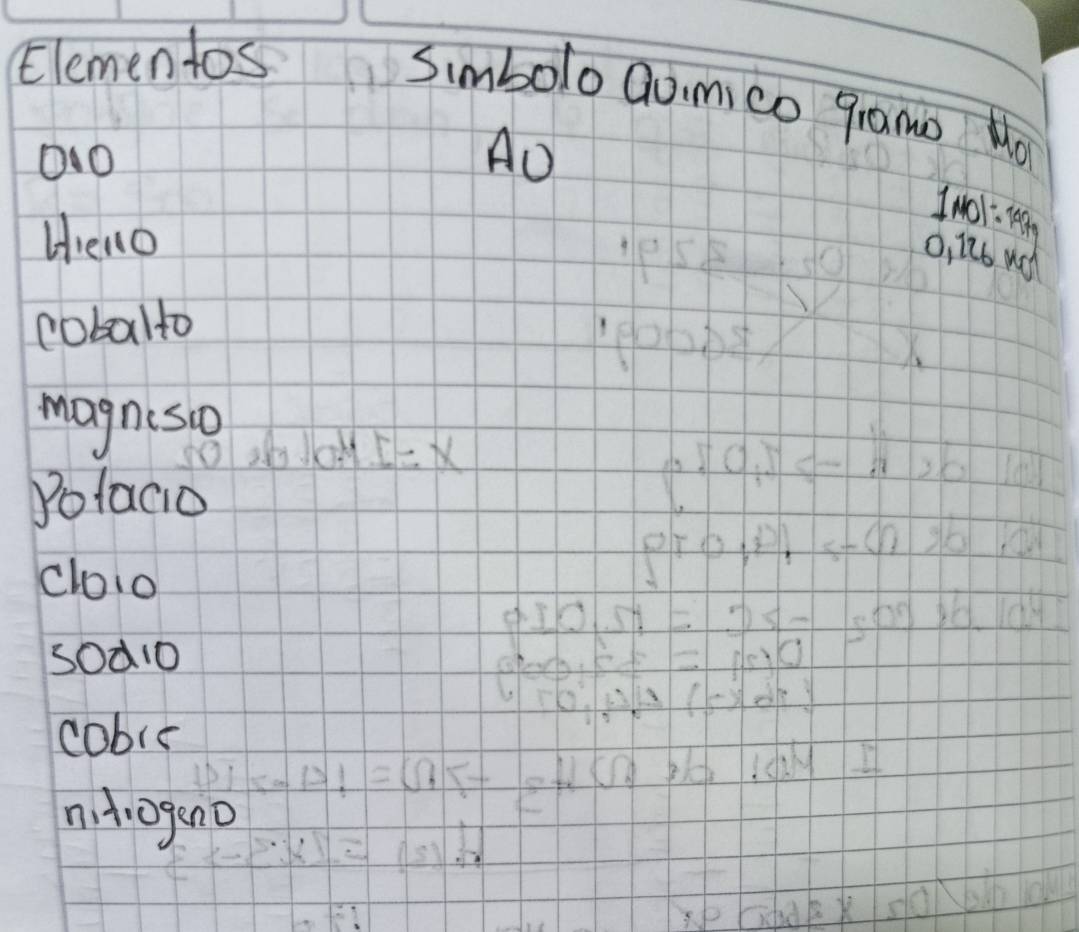 Elementos Simbolo Quimico gramo Mol
Oro AU
1 Mol = 197g
Hierro 0,126 mol
cobalto
magnesio
Potacio
cloro
sodio
cobre
nitrogeno